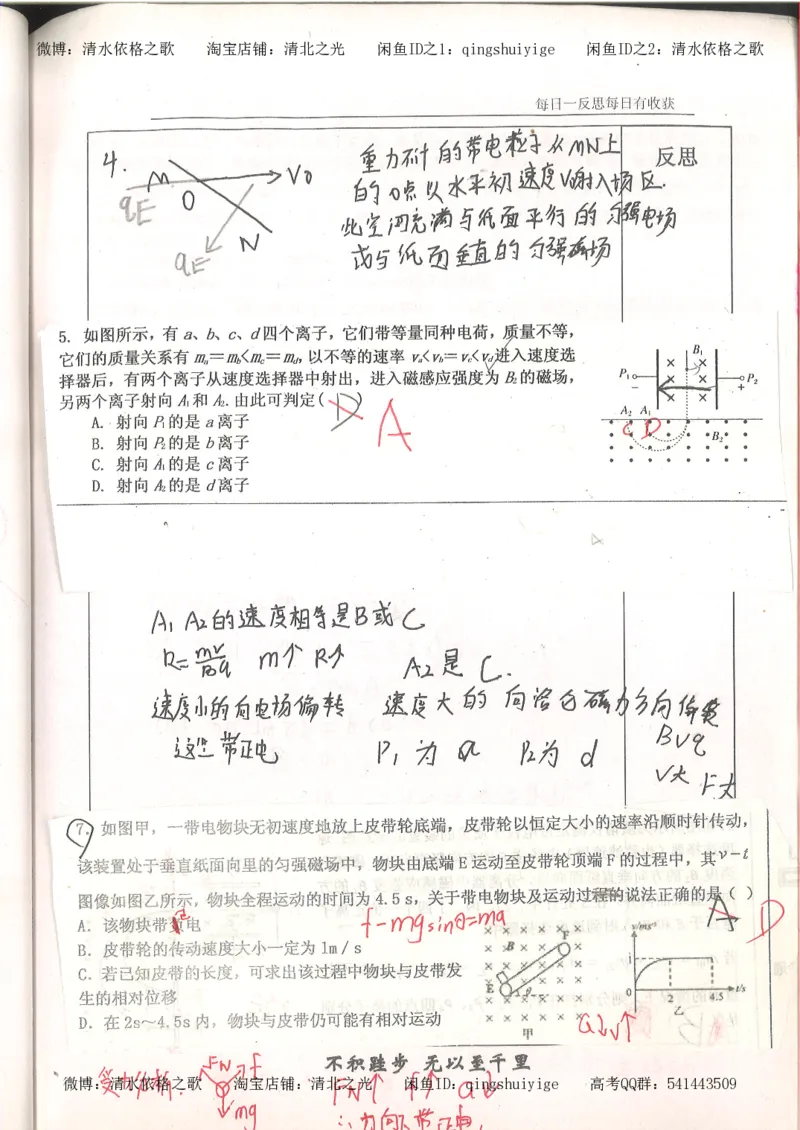 微博：清水依格之歌 淘宝店铺：清北之光 闲鱼ID之1：qingshuiyige 闲鱼ID之2：清水依格之歌
每日一反思每日有收获
4. M O N V0 qE qE
重力不计的带电粒子从MN上
的O点以水平初速度V0射入场区.
此空间充满与纸面平行的匀强电场
或与纸面垂直的匀强磁场
反思
5. 如图所示，有 a、b、c、d 四个离子，它们带等量同种电荷，质量不等，
它们的质量关系有 ma＝mb<mc＝md，以不等的速率 va<vb＝vc<vd进入速度选
择器后，有两个离子从速度选择器中射出，进入磁感应强度为 B2的磁场，
另两个离子射向 A1和 A2. 由此可判定( D ) A
A. 射向 P1的是 a 离子
B. 射向 P2的是 b 离子
C. 射向 A1的是 c 离子
D. 射向 A2的是 d 离子
B1
P1 P2
－ ＋
A2 A1
C D
B2
A1 A2的速度相等是B或C
R=mv/Bq m↑ R↑ A2是C.
速度小的向电场偏转 速度大的向洛仑磁力方向偏转
这些带正电 P1为a P2为d
Bvq
V大 F大
7. 如图甲，一带电物块无初速度地放上皮带轮底端，皮带轮以恒定大小的速率沿顺时针传动，
该装置处于垂直纸面向里的匀强磁场中，物块由底端 E 运动至皮带轮顶端 F 的过程中，其 v－t
图像如图乙所示，物块全程运动的时间为 4.5 s，关于带电物块及运动过程的说法正确的是（ ）
A D
A．该物块带负电
正
f-mgsinθ=ma
B．皮带轮的传动速度大小一定为 1m／s
C．若已知皮带的长度，可求出该过程中物块与皮带发
生的相对位移
D．在 2s～4.5s 内，物块与皮带仍可能有相对运动
B F E θ
甲
v/ms-1
1
0 2 4.5 t/s
乙
a↓v↑
不积跬步 无以至千里
微博：清水依格之歌 淘宝店铺：清北之光 闲鱼ID：qingshuiyige 高考QQ群：541443509
受力分析： FN f mg
FN↑ f↑ a↓
∴力向下带正电.